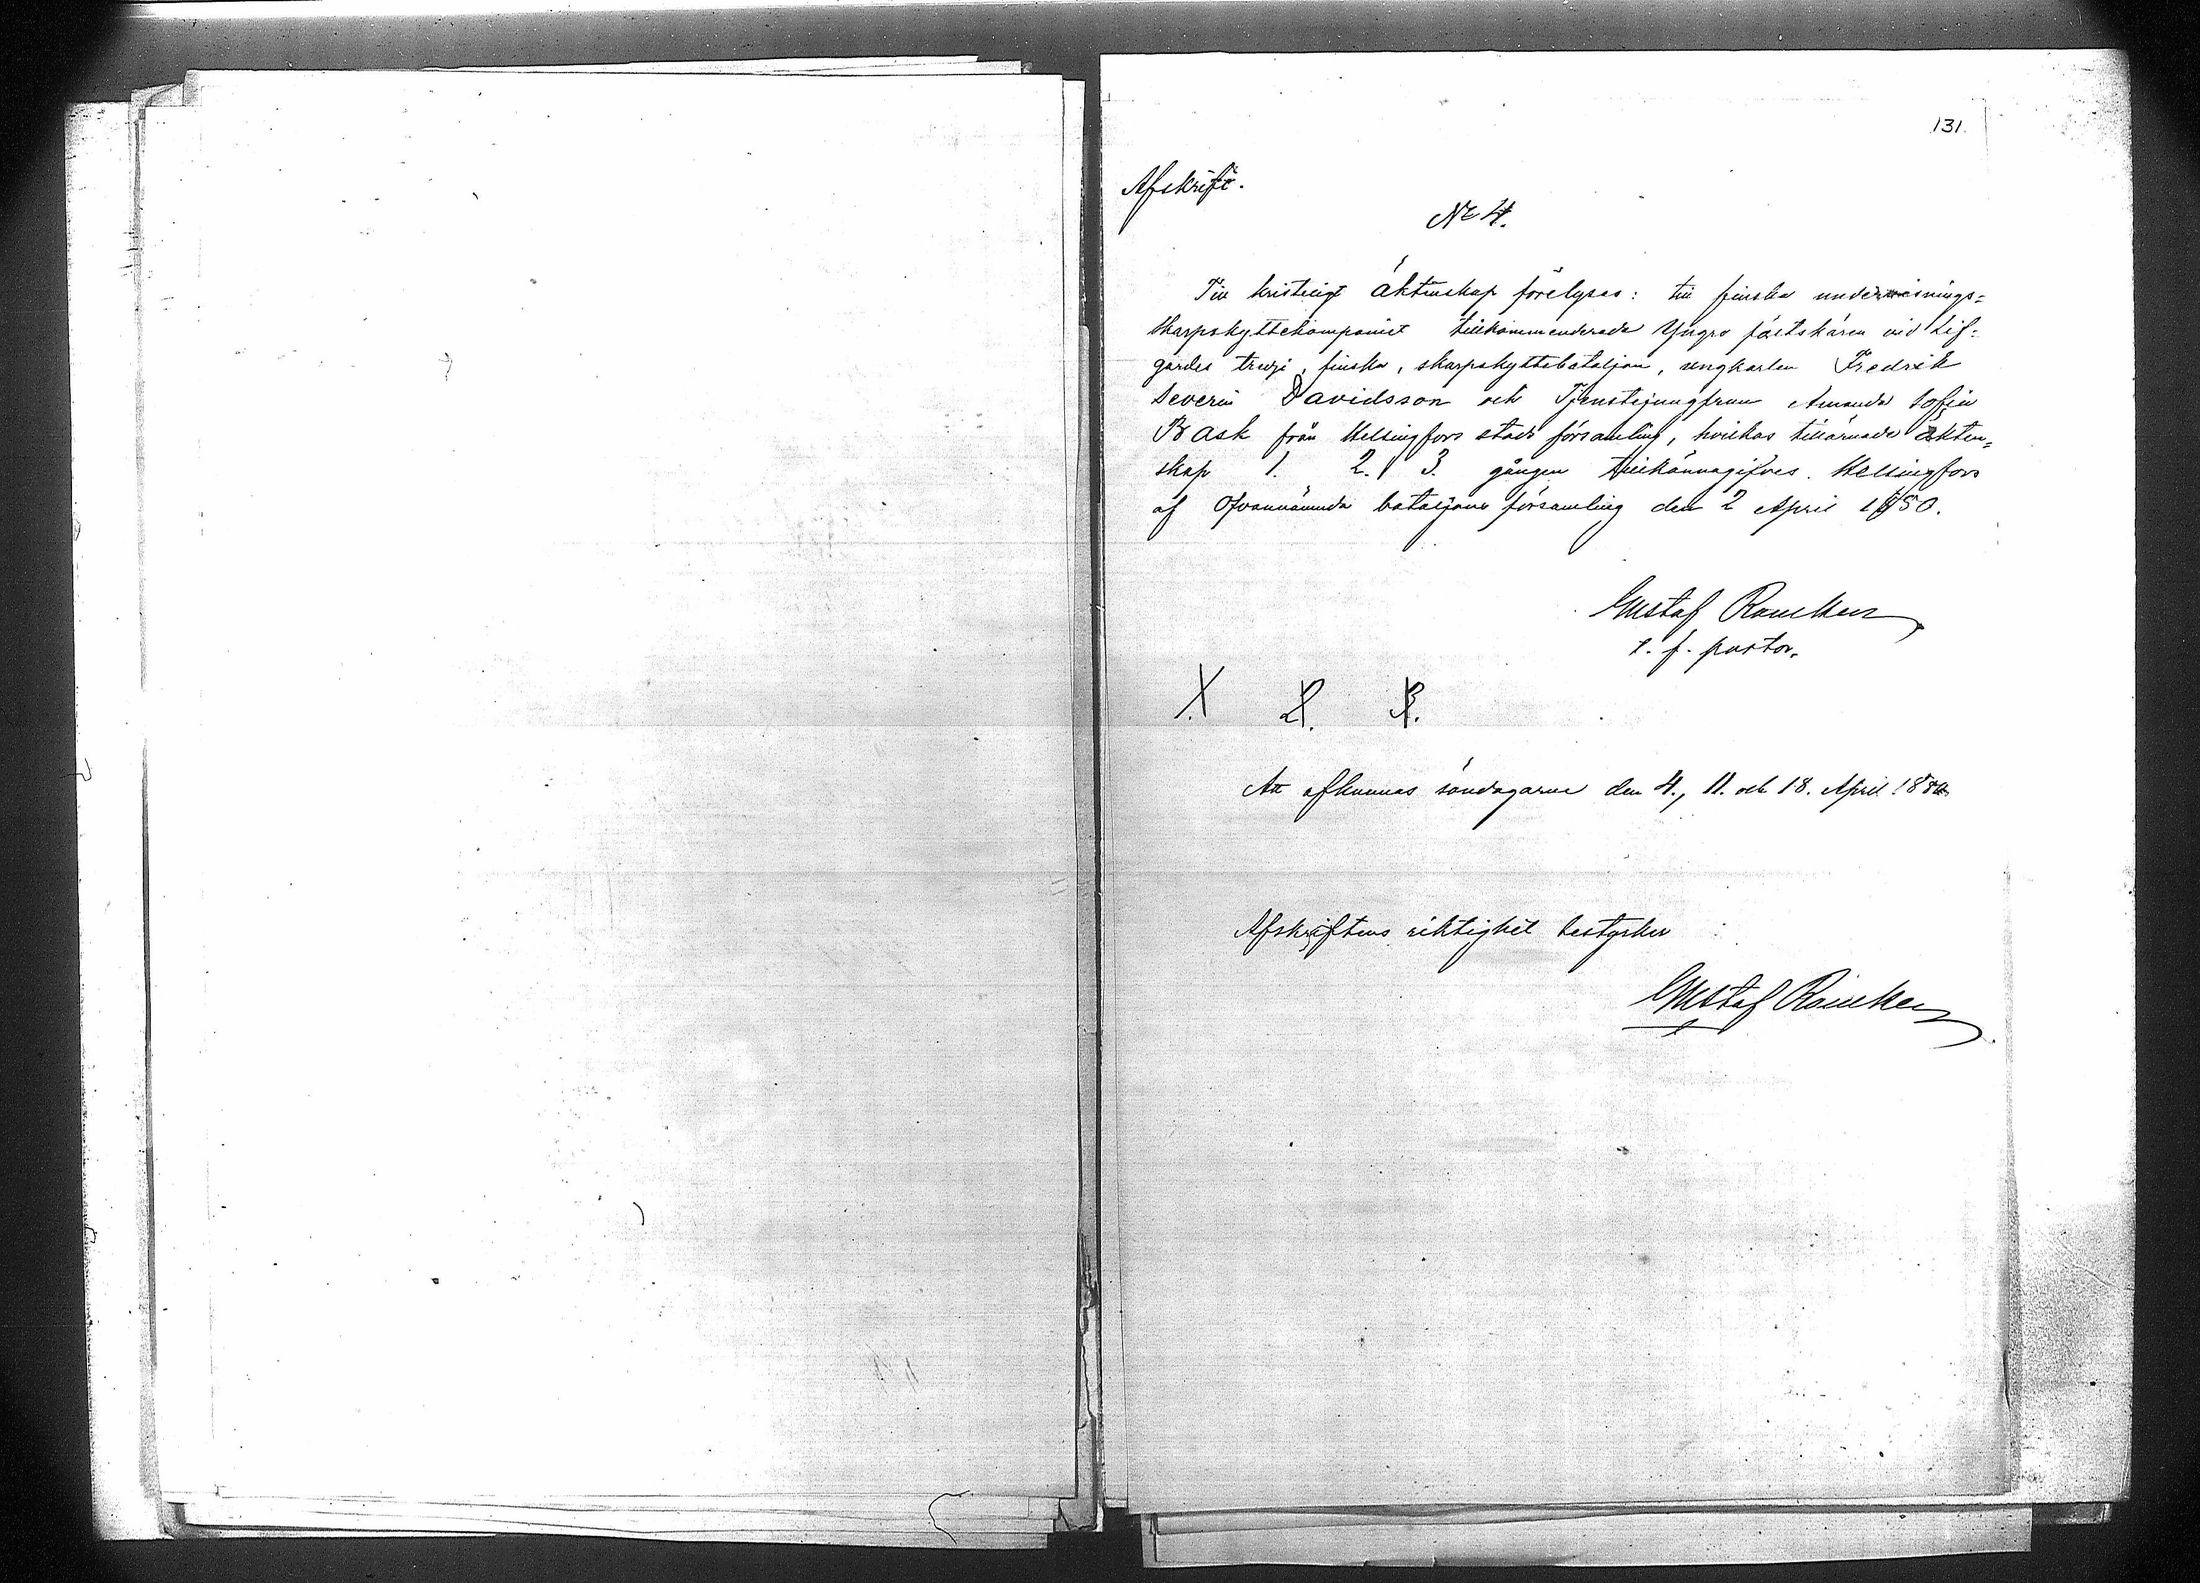 131.
Afskrift.
No 4.
Till kristeligt äktenskap förelyses: till finska undervisnings=
skarpskyttekompaniet tillkommenderade Yngre fältskären vid Lif-
gardes tredje, finska, skarpskyttebataljon, ungkarlen Fredrik
Severin Davidsson och Tjenstejungfrun Amanda Sofia
Bask från Helsingfors stads församling, hvilkas tillärnade äkten=
skap 1. 2. 3. gången tillkännagifves. Helsingfors
af Ofvannämnda bataljons församling den 2 April 1880.
Gustaf Rancken
t. f. pastor.
1. 2. 3.
Att afkunnas söndagarne den 4., 11. och 18. April 1880
Afskriftens riktighet bestyrker
Gustaf Rancken